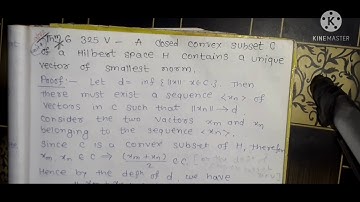 Thm 6 325 V - A closed convex subset C
of a Hilbert space H contains a unique
vector of smallest norm.
Proof :- Let d = inf {||x|| : x ∈ C}. Then
there must exist a sequence <xn> of
vectors in C such that ||xn|| → d
Consider the two vactors xm and xn
belonging to the sequence <xn>.
Since C is a convex subset of H, therefore
xm, xn ∈ C ⇒ (xm + xn)/2 ∈ C. [by the defn of
Hence by the defn of d, we have
MADE WITH
KINEMASTER